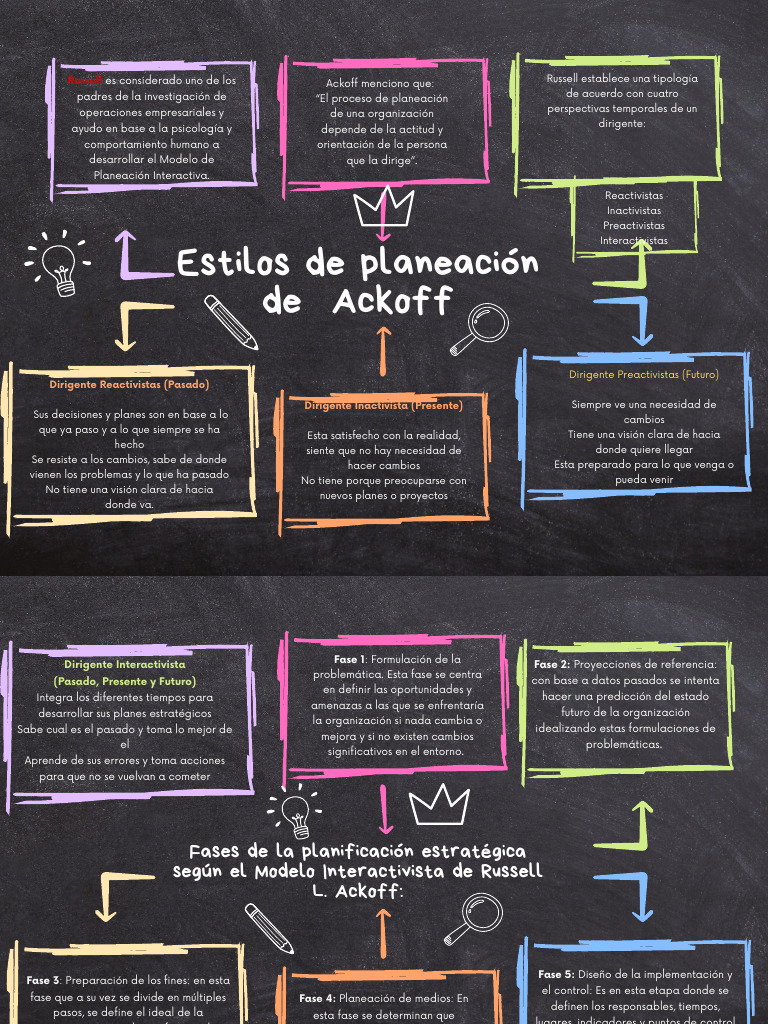 es considerado uno de los
padres de la investigación de
operaciones empresariales y
ayudo en base a la psicología y
comportamiento humano a
desarrollar el Modelo de
Planeación Interactiva.
Ackoff menciono que:
“El proceso de planeación
de una organización
depende de la actitud y
orientación de la persona
que la dirige”.
Russell establece una tipología
de acuerdo con cuatro
perspectivas temporales de un
dirigente:
Reactivistas
Inactivistas
Preactivistas
Interactivistas
Estilos de planeación
de Ackoff
Dirigente Reactivistas (Pasado)
Sus decisiones y planes son en base a lo
que ya paso y a lo que siempre se ha
hecho
Se resiste a los cambios, sabe de donde
vienen los problemas y lo que ha pasado
No tiene una visión clara de hacia
donde va.
Dirigente Inactivista (Presente)
Esta satisfecho con la realidad,
siente que no hay necesidad de
hacer cambios
No tiene porque preocuparse con
nuevos planes o proyectos
Dirigente Preactivistas (Futuro)
Siempre ve una necesidad de
cambios
Tiene una visión clara de hacia
donde quiere llegar
Esta preparado para lo que venga o
pueda venir
Dirigente Interactivista
(Pasado, Presente y Futuro)
Integra los diferentes tiempos para
desarrollar sus planes estratégicos
Sabe cual es el pasado y toma lo mejor de
el
Aprende de sus errores y toma acciones
para que no se vuelvan a cometer
Fase 1: Formulación de la
problemática. Esta fase se centra
en definir las oportunidades y
amenazas a las que se enfrentaría
la organización si nada cambia o
mejora y si no existen cambios
significativos en el entorno.
Fase 2: Proyecciones de referencia:
con base a datos pasados se intenta
hacer una predicción del estado
futuro de la organización
idealizando estas formulaciones de
problemáticas.
Fases de la planificación estratégica
según el Modelo Interactivista de Russell
L. Ackoff:
Fase 3: Preparación de los fines: en esta
fase que a su vez se divide en múltiples
pasos, se define el ideal de la
Fase 4: Planeación de medios: En
esta fase se determinan que
Fase 5: Diseño de la implementación y
el control: Es en esta etapa donde se
definen los responsables, tiempos,
lugares, indicadores y puntos de control